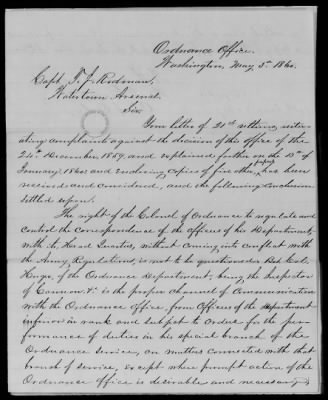 Ordnance Office,
Washington, May 3d 1860.
Capt. T. J. Rodman,
Watertown Arsenal.
Sir
Your letter of 21st ultimo, reiter-
ating complaint against the decision of this office of the
24th December 1859, and explained further on the 13th of
January 1860 and enclosing copies of five other papers has been
received and considered, and the following conclusion
settled upon.
The right of the Colonel of Ordnance to regulate and
control the correspondence of the officers of his Department,
with the Head Quarters, without coming into conflict with
the Army Regulations, is not to be questioned. Col.
Huger, of the Ordnance Department, being the Inspector
of Cannon &c. is the proper channel of communication
with the Ordnance Office, from Officers of the Department
inferior in rank and subject to orders for the per-
formance of duties in his special branch of the
Ordnance service, on matters connected with that
branch of service, except when prompt action of the
Ordnance Office is desirable and necessary;